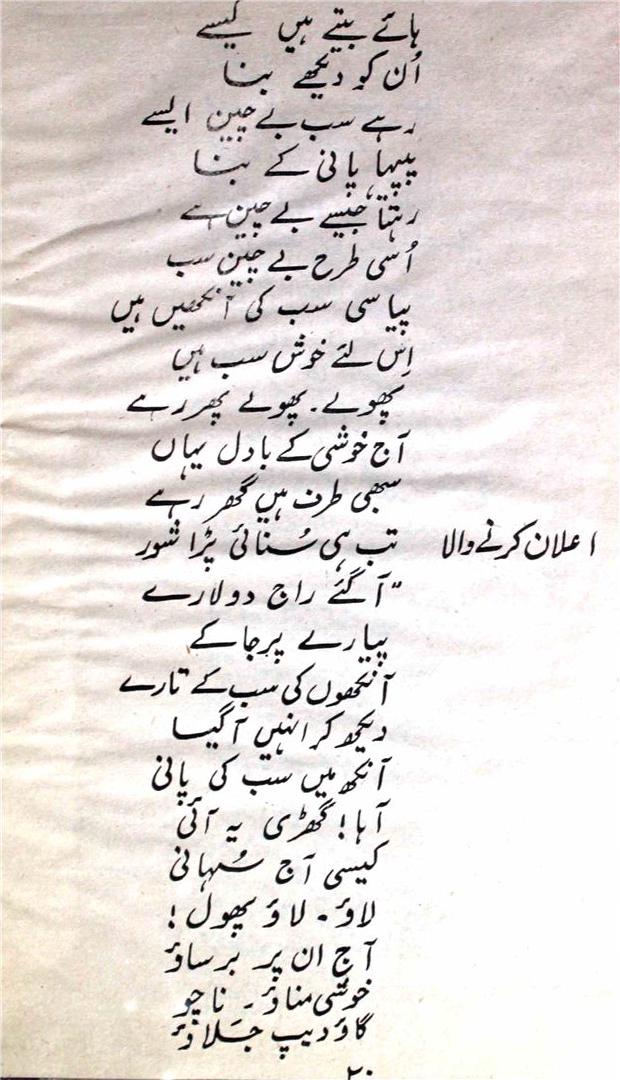 ہائے بیتے ہیں کیسے
اُن کو دیکھے بنا
رہے سب بے چین ایسے
پپہا پانی کے بنا
رہتا جیسے بے چین ہے
اُسی طرح بے چین سب
پیاسی سب کی آنکھیں ہیں
اِس لئے خوش سب ہیں
پھولے۔ پھولے پھر رہے
آج خوشی کے بادل یہاں
سبھی طرف ہیں گھر رہے
اعلان کرنے والا تب ہی سُنائی پڑا شور
"آ گئے راج دولارے
پیارے پرجا کے
آنکھوں کی سب کے تارے
دیکھ کر انہیں آ گیا
آنکھ میں سب کی پانی
آہا! گھڑی یہ آئی
کیسی آج سُہانی
لاؤ۔ لاؤ پھول!
آج ان پر برساؤ
خوشی مناؤ۔ ناچو
گاؤ دیپ جَلاؤ
۲۰